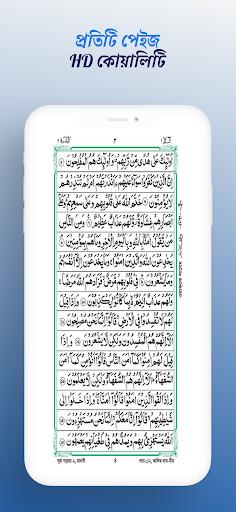 প্রতিটি পেইজ
HD কোয়ালিটি
٣
اُولٰٓئِكَ عَلٰى هُدًى مِّنْ رَّبِّهِمْ وَاُولٰٓئِكَ هُمُ الْمُفْلِحُوْنَ ۝
اِنَّ الَّذِيْنَ كَفَرُوْا سَوَآءٌ عَلَيْهِمْ ءَاَنْذَرْتَهُمْ اَمْ لَمْ تُنْذِرْهُمْ
لَا يُؤْمِنُوْنَ ۝ خَتَمَ اللّٰهُ عَلٰى قُلُوْبِهِمْ وَعَلٰى سَمْعِهِمْ وَعَلٰٓى
اَبْصَارِهِمْ غِشَاوَةٌ وَّلَهُمْ عَذَابٌ عَظِيْمٌ ۝ وَمِنَ النَّاسِ
مَنْ يَّقُوْلُ اٰمَنَّا بِاللّٰهِ وَبِالْيَوْمِ الْاٰخِرِ وَمَا هُمْ بِمُؤْمِنِيْنَ ۝
يُخٰدِعُوْنَ اللّٰهَ وَالَّذِيْنَ اٰمَنُوْا وَمَا يَخْدَعُوْنَ اِلَّآ اَنْفُسَهُمْ
وَمَا يَشْعُرُوْنَ ۝ فِيْ قُلُوْبِهِمْ مَّرَضٌ فَزَادَهُمُ اللّٰهُ مَرَضًا
وَلَهُمْ عَذَابٌ اَلِيْمٌۢ بِمَا كَانُوْا يَكْذِبُوْنَ ۝ وَاِذَا قِيْلَ
لَهُمْ لَا تُفْسِدُوْا فِى الْاَرْضِ قَالُوْٓا اِنَّمَا نَحْنُ مُصْلِحُوْنَ ۝
اَلَآ اِنَّهُمْ هُمُ الْمُفْسِدُوْنَ وَلٰكِنْ لَّا يَشْعُرُوْنَ ۝ وَاِذَا
قِيْلَ لَهُمْ اٰمِنُوْا كَمَآ اٰمَنَ النَّاسُ قَالُوْٓا اَنُؤْمِنُ كَمَآ اٰمَنَ
السُّفَهَآءُ اَلَآ اِنَّهُمْ هُمُ السُّفَهَآءُ وَلٰكِنْ لَّا يَعْلَمُوْنَ ۝
وَاِذَا لَقُوا الَّذِيْنَ اٰمَنُوْا قَالُوْٓا اٰمَنَّا وَاِذَا خَلَوْا اِلٰى
شَيٰطِيْنِهِمْ قَالُوْٓا اِنَّا مَعَكُمْ اِنَّمَا نَحْنُ مُسْتَهْزِءُوْنَ ۝
اَللّٰهُ يَسْتَهْزِئُ بِهِمْ وَيَمُدُّهُمْ فِيْ طُغْيَانِهِمْ يَعْمَهُوْنَ ۝
সূরা বাকারা-২, মাদানী ৪ পারা-১/১, আলিফ-লাম-মীম